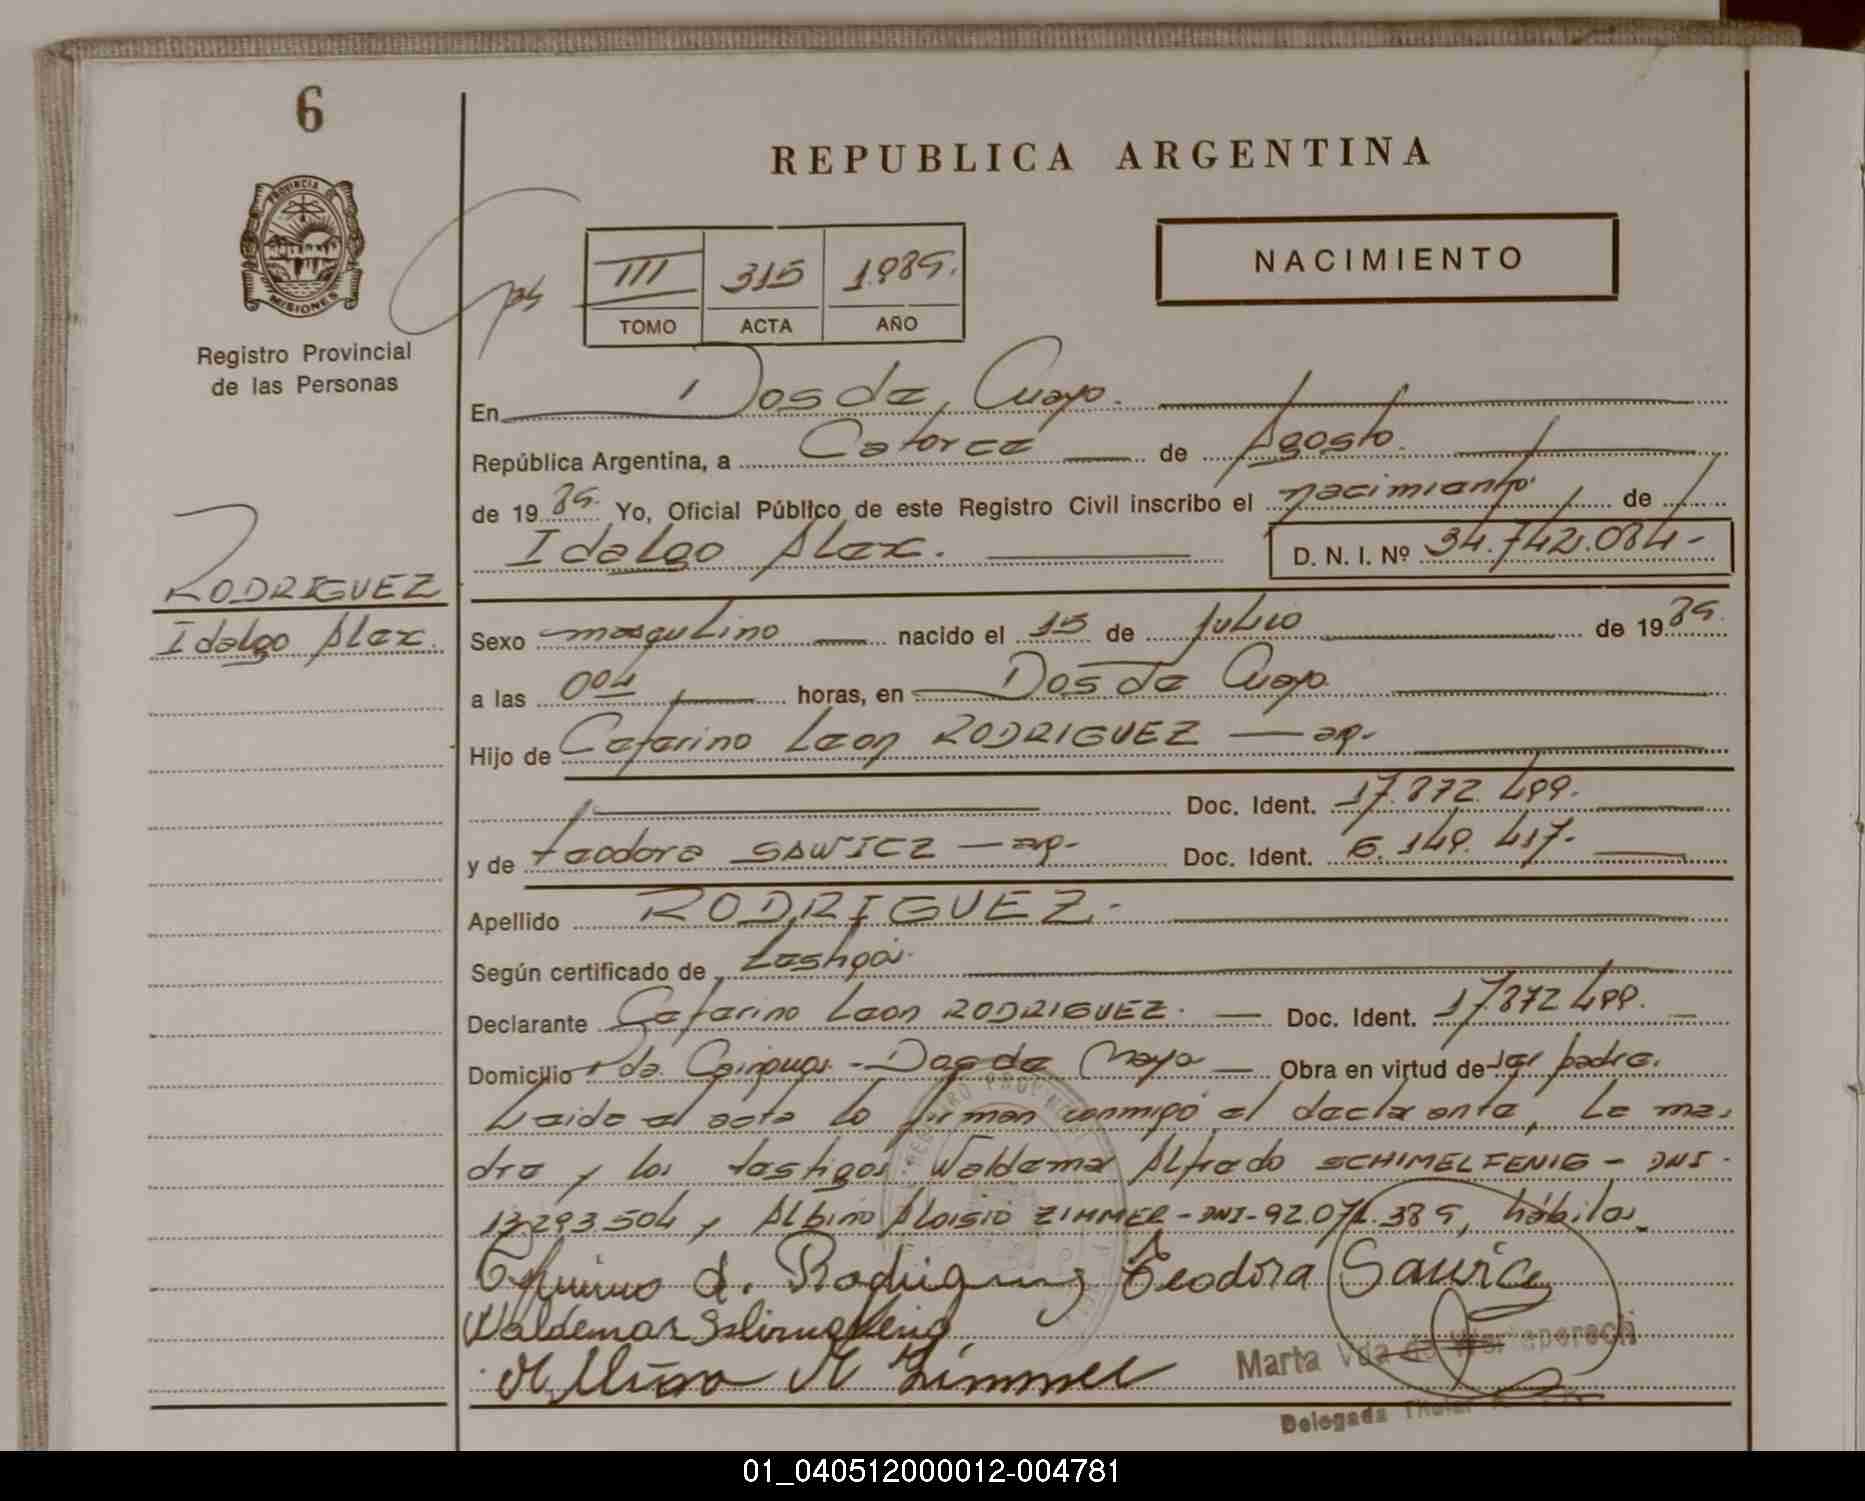 6
REPUBLICA ARGENTINA
PROVINCIA DE
MISIONES
Registro Provincial
de las Personas
NACIMIENTO
III 315 1.989.
TOMO ACTA AÑO
En Dos de Mayo.
República Argentina, a Catorce de Agosto.
de 1989. Yo, Oficial Público de este Registro Civil inscribo el nacimiento. de
Idalgo Alex. D. N. I. Nº 34.742.084-
RODRIGUEZ
Idalgo Alex.
Sexo masculino nacido el 15 de julio de 1989.
a las 004 horas, en Dos de Mayo
Hijo de Ceferino Leon RODRIGUEZ — ap.
Doc. Ident. 17.872.499.
y de teodora SAWICZ — ap. Doc. Ident. 6.149.417.
Apellido RODRIGUEZ.-
Según certificado de testigos.
Declarante Ceferino Leon RODRIGUEZ. Doc. Ident. 17.872.499.
Domicilio Pdo. Cainguas - Dos de Mayo — Obra en virtud de ser padre.
Leida el acta la firman conmigo el declarante, la ma-
dre y los testigos Waldemar Alfredo SCHIMELFENIG - DNI-
13.293.504 y Albino Aloisio ZIMMER - DNI - 92.071.389, hábiles.
Teodora Sawicz
Marta Vda de
Delegada Titular
01_040512000012-004781